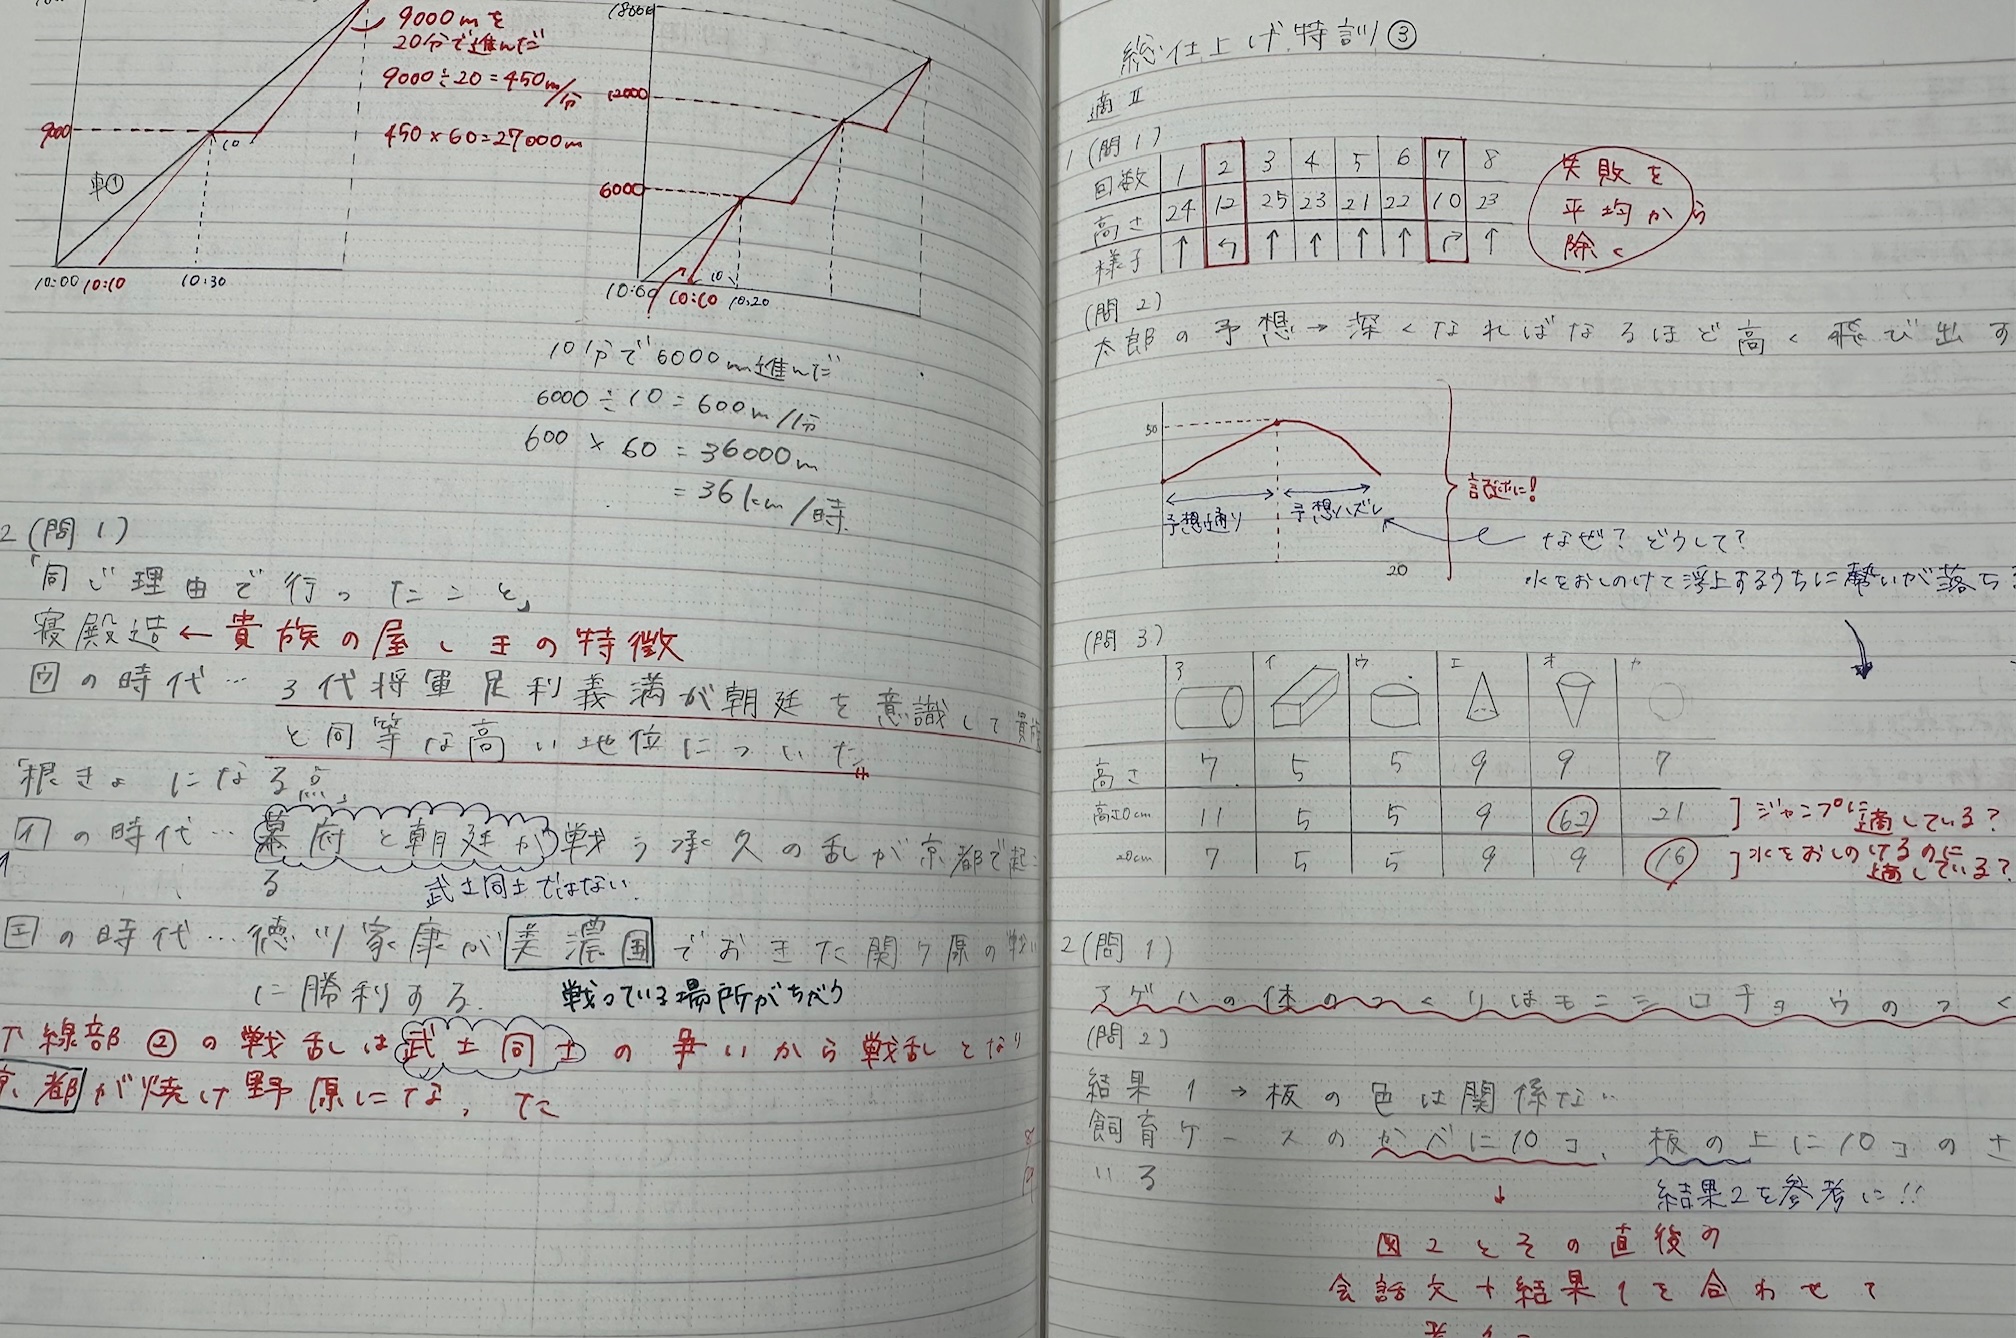 9000mを
20分で進んだ
9000÷20=450m/分
450×60=27000m
9000
10
車①
10:00 10:10 10:30
18000
12000
6000
10
10:00 10:10 10:20
10分で6000m進んだ
6000÷10=600m/分
600×60=36000m
=36km/時
2(問1)
「同じ理由で行ったこと」
寝殿造←貴族の屋しきの特徴
ウの時代… 3代将軍足利義満が朝廷を意識して貴族
と同等な高い地位についた
「根きょになる点」
イの時代… 幕府と朝廷が戦う承久の乱が京都で起こ
る
武士同士ではない
エの時代…徳川家康が美濃国でおきた関ケ原の戦い
に勝利する
戦っている場所がちがう
下線部②の戦乱は武士同士の争いから戦乱となり
京都が焼け野原になった
総仕上げ特訓③
適Ⅱ
1(問1)
回数 1 2 3 4 5 6 7 8
高さ 24 12 25 23 21 22 10 23
様子 ↑ ↰ ↑ ↑ ↑ ↑ ↱ ↑
失敗を
平均から
除く
(問2)
太郎の予想→深くなればなるほど高く飛び出す
50
予想通り 予想ハズレ
20
記述に!
なぜ?どうして?
水をおしのけて浮上するうちに勢いが落ち
(問3)
ア イ ウ エ オ カ
高さ 7 5 5 9 9 7
11 5 5 9 62 21
20cm 7 5 5 9 9 16
]ジャンプに適している?
]水をおしのけるのに
適している?
2(問1)
アゲハの体のつくりはモンシロチョウのつく
(問2)
結果1→板の色は関係ない
飼育ケースのかべに10コ、板の上に10コのさ
いる
↓
結果2を参考に!!
図2とその直後の
会話文+結果1を合わせて